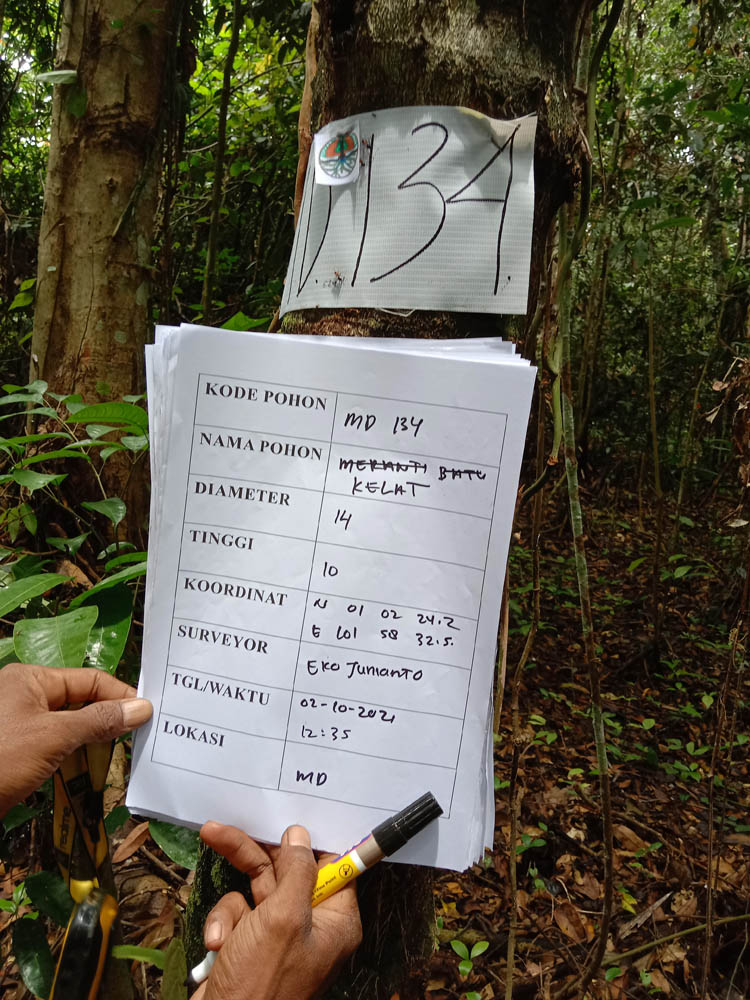 134
KODE POHON MD 134
NAMA POHON MERANTI BATU
KELAT
DIAMETER 14
TINGGI 10
KOORDINAT N 01 02 24.2
E 101 58 32.5.
SURVEYOR EKO JUNIANTO
TGL/WAKTU 02-10-2021
12:35
LOKASI MD
realme